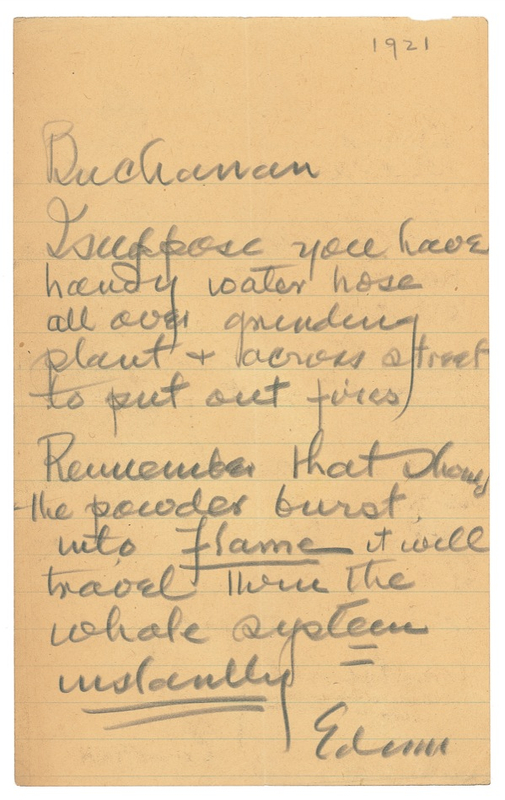 1921
Buchanan
I suppose you have
handy water hose
all over grinding
plant + across street
to put out fires
Remember that should
the powder burst
into flame it will
travel thru the
whole system
instantly
Edison